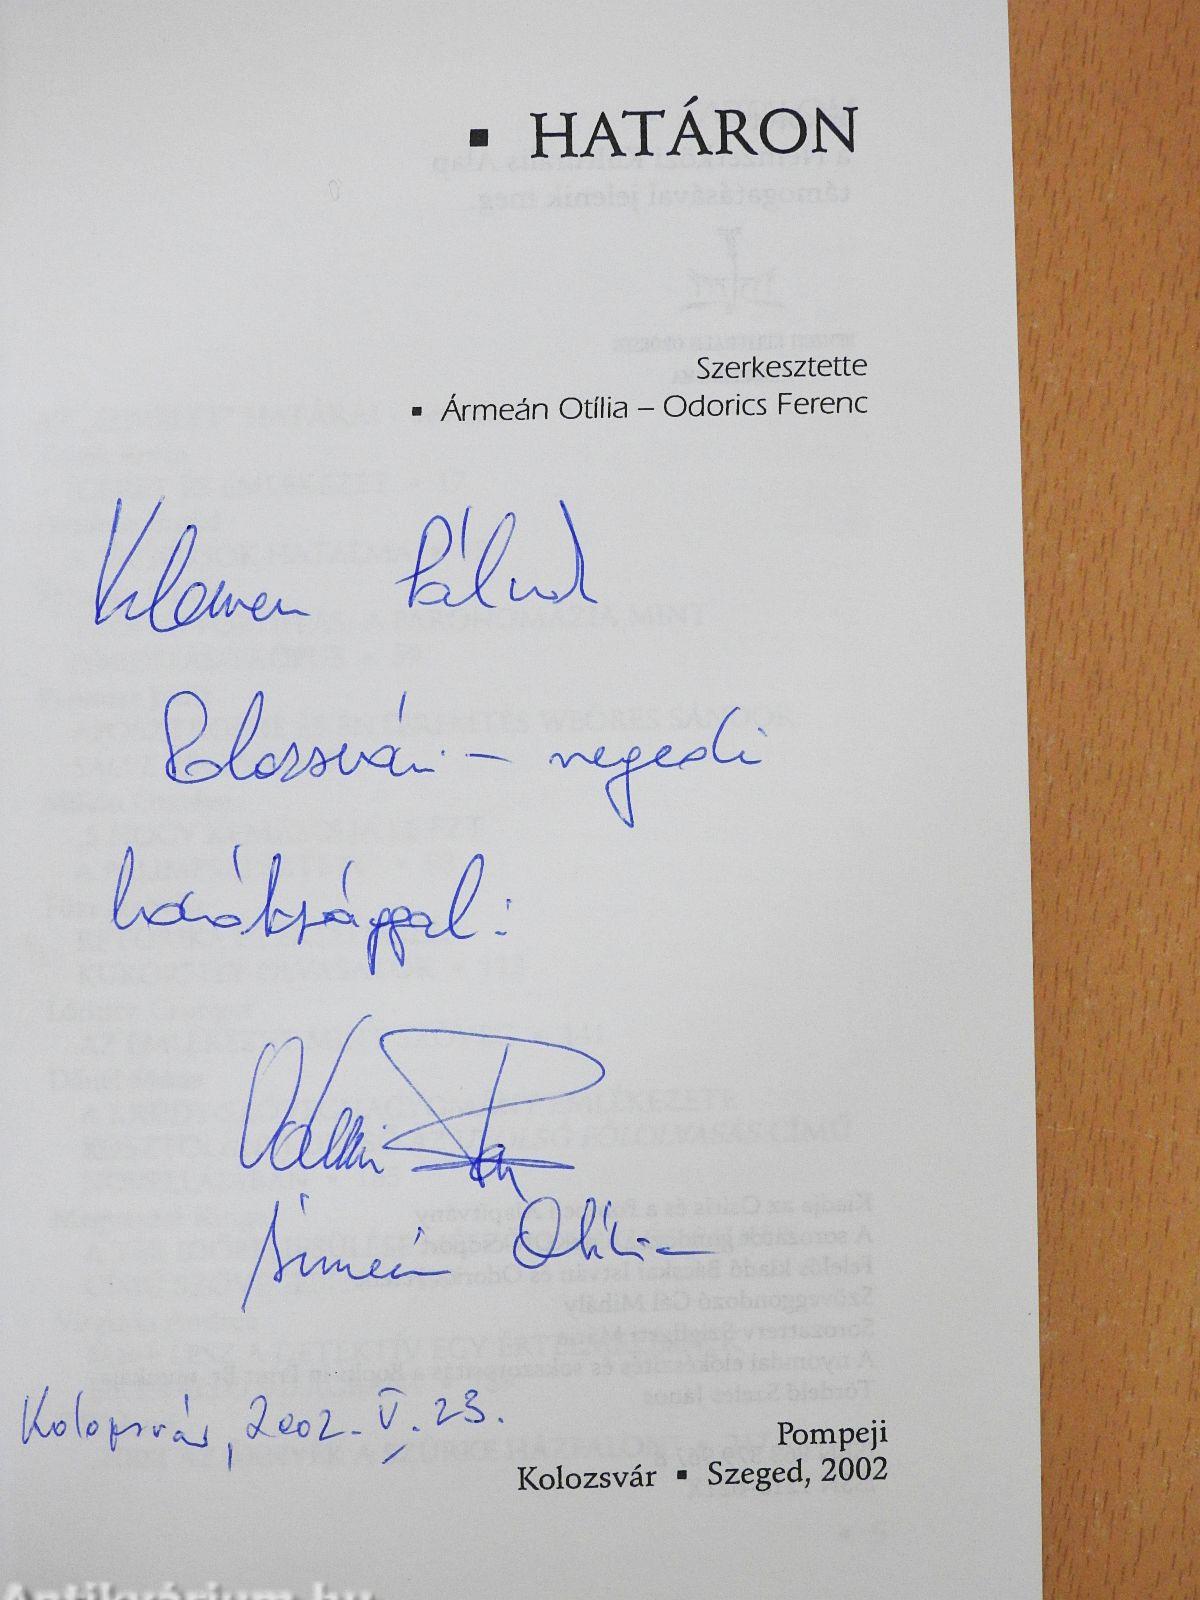 ▪ HATÁRON
Szerkesztette
▪ Ármeán Otília – Odorics Ferenc
Klemen Pálnak
Kolozsvári – szegedi
barátsággal:
Ármeán Otília
Kolozsvár, 2002. V. 23.
Pompeji
Kolozsvár ▪ Szeged, 2002
Antikvárium.hu